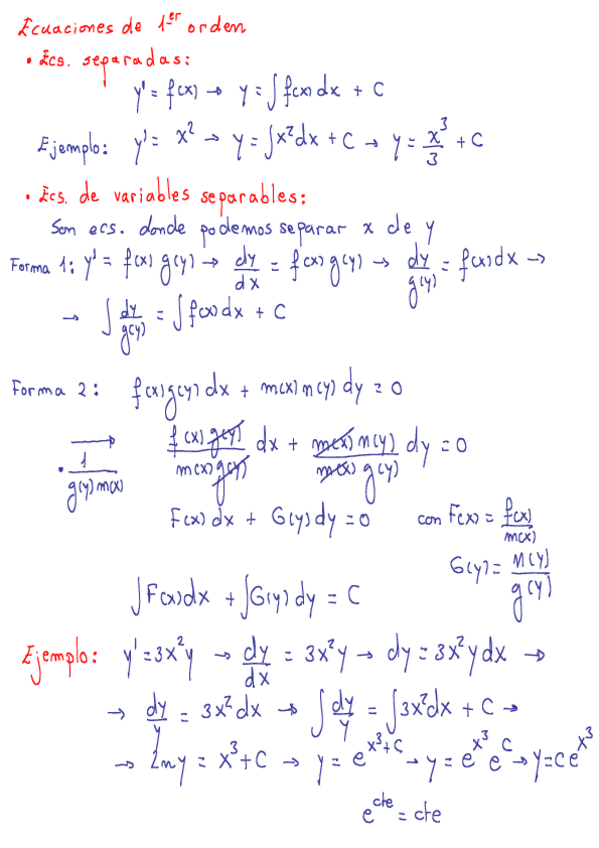 Ecuaciones de 1er orden
• Ecs. separadas:
y' = f(x) → y = ∫f(x) dx + C
Ejemplo: y' = x² → y = ∫x²dx + C → y = x³/3 + C
• Ecs. de variables separables:
Son ecs. donde podemos separar x de y
Forma 1: y' = f(x) g(y) → dy/dx = f(x) g(y) → dy/g(y) = f(x)dx →
→ ∫ dy/g(y) = ∫ f(x)dx + C
Forma 2: f(x)g(y)dx + m(x)n(y)dy = 0
→ · 1/(g(y)m(x)) f(x)g(y)/(m(x)g(y)) dx + m(x)n(y)/(m(x)g(y)) dy = 0
F(x)dx + G(y)dy = 0 con F(x) = f(x)/m(x)
G(y) = n(y)/g(y)
∫F(x)dx + ∫G(y)dy = C
Ejemplo: y' = 3x²y → dy/dx = 3x²y → dy = 3x²ydx →
→ dy/y = 3x²dx → ∫ dy/y = ∫3x²dx + C →
→ Ln y = x³ + C → y = e^(x³+C) → y = e^(x³) e^C → y = C e^(x³)
e^cte = cte